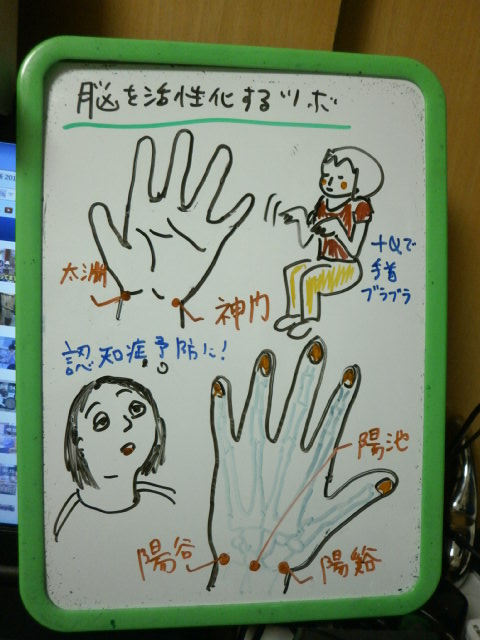 脳を活性化するツボ
太淵
神門
+αで
手首
ブラブラ
認知症予防に!
陽池
陽谷
陽谿